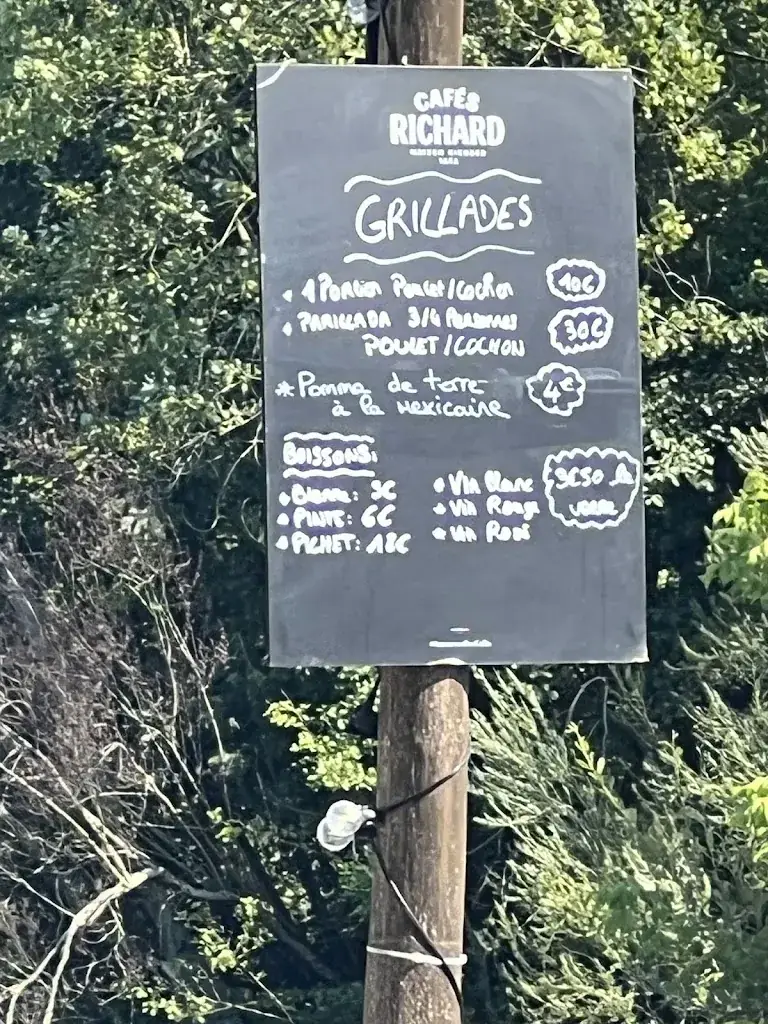 CAFÉS
RICHARD
GRILLADES
1 Portion Poulet/Cochon 10€
PARILLADA 3/4 PERSONNES 30€
POULET/COCHON
* Pomme de terre 4€
à la mexicaine
BOISSONS:
Bierre: 3€
PINTE: 6€
PICHET: 18€
Vin Blanc 3€50 le
Vin Rouge verre
Vin Rosé